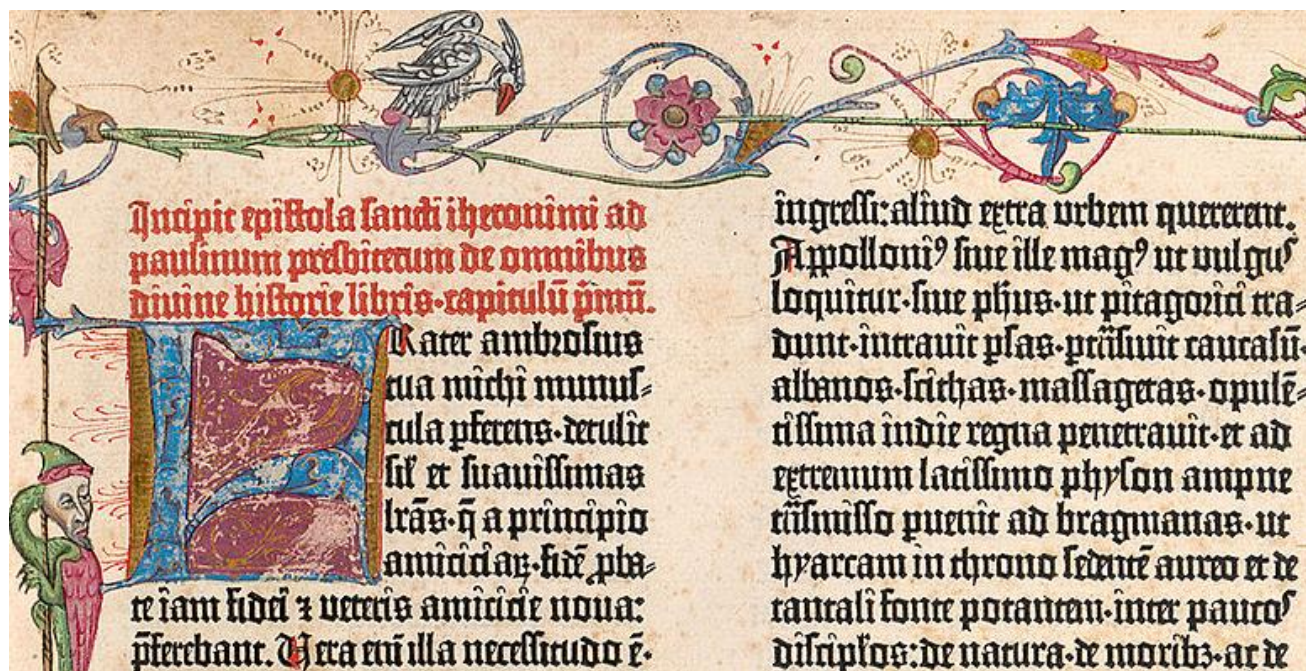 Incipit epistola sancti iheronimi ad
paulinum presbiterum de omnibus
divine historie libris·capitulū p̄mū.
FRater ambrosius
tua michi munus-
cula p̄ferens·detulit
sil̛ et suavissimas
lrās·q̄ a principio
amiciciaꝝ·fidē ꝓba-
te iam fidei ⁊ veteris amicicie nova:
p̄ferebant. Vera eni̅ illa necessitudo ē·
ingressi:aliud extra urbem quererent.
Appolloniꝰ sive ille magꝰ ut vulgus
loquitur·sive ph̄us·ut pitagorici tra-
dunt·intravit ꝑsas·ꝑtrāsivit caucasū·
albanos·scithas·massagetas·opulē-
tissima indie regna penetravit·et ad
extremum latissimo physon ampne
trāsmisso ꝑuenit ad bragmanas·ut
hyarcam in throno sedentē aureo et de
tantali fonte potantem·inter paucos
discip̄los:de natura·de moribꝫ·ac de